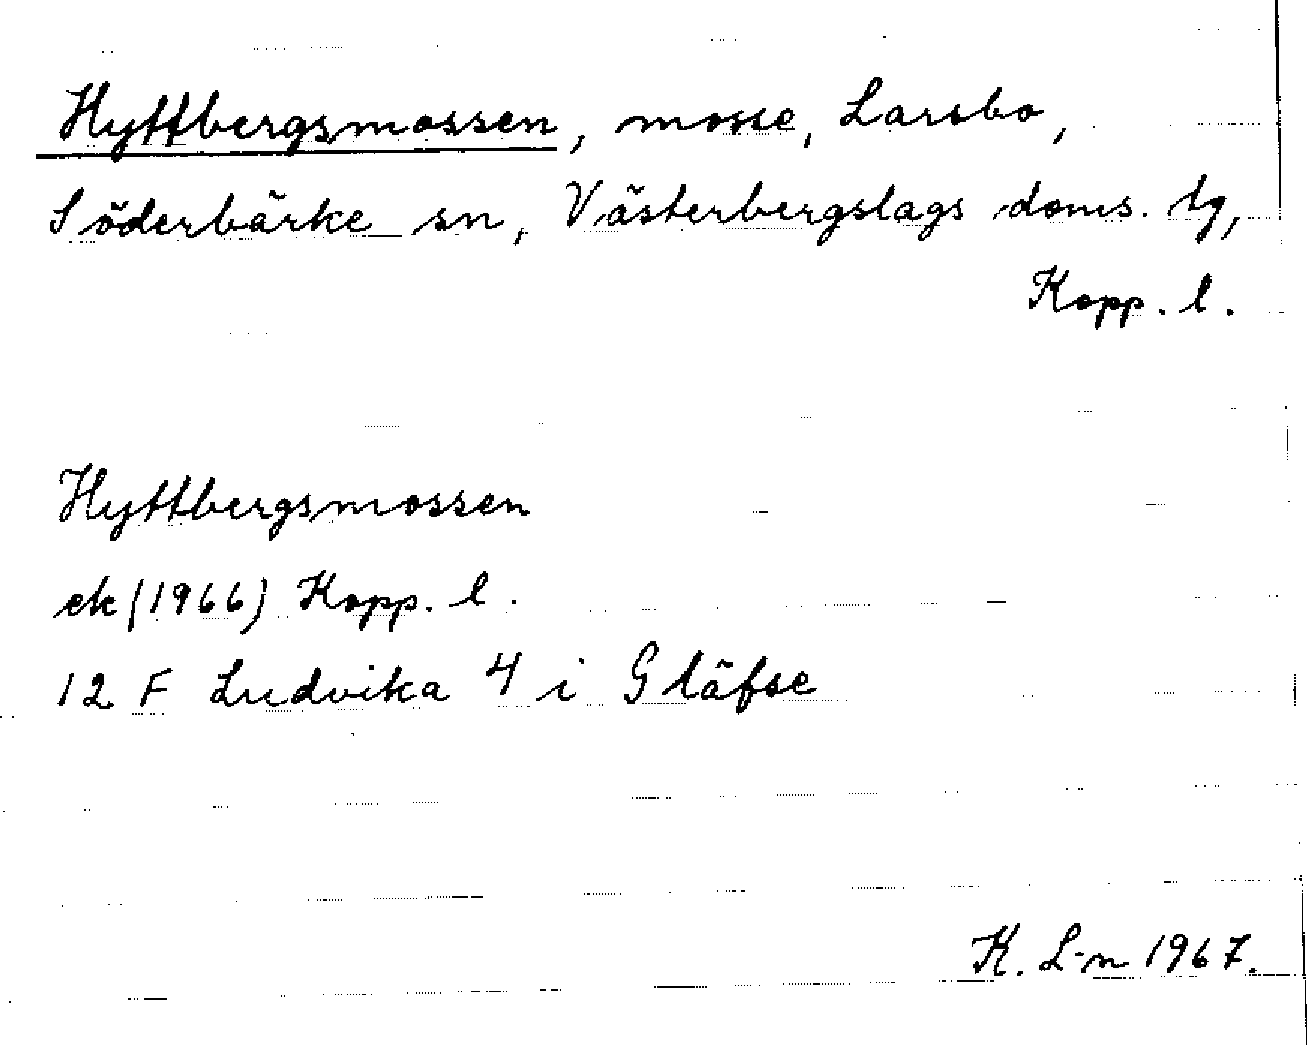 Hyttbergsmossen, mosse, Larsbo,
Söderbärke sn, Västerbergslags doms. lg,
Kopp. l.
Hyttbergsmossen
ek (1966) Kopp. l.
12 F Ludvika 4 i Gläfse
K. L-n 1967.